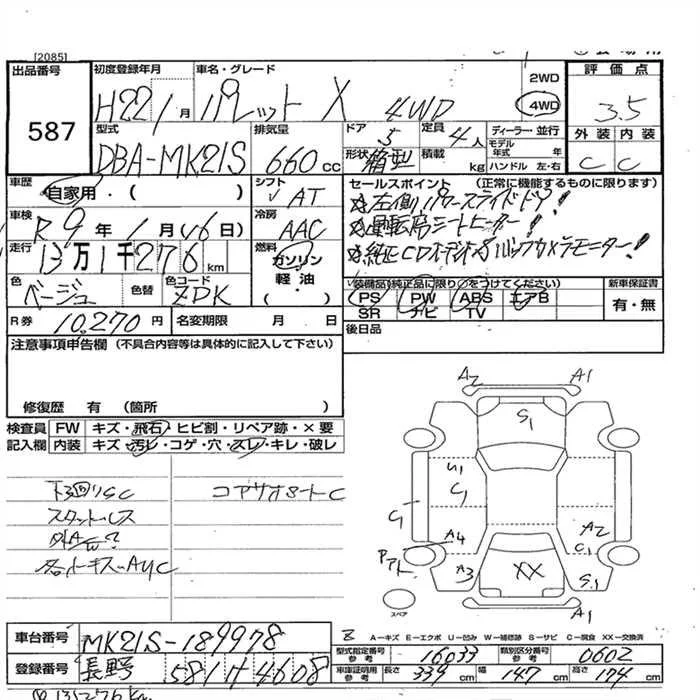 [2085]
出品番号 初度登録年月 車名・グレード 2WD 4WD 評価点
587 H22 1月 パレット X 4WD 3.5
型式 排気量 ドア 定員 ディーラー・並行 外装 内装
DBA-MK21S 660cc 5 4人 モデル年式 年 C C
形状 箱型 積載 kg ハンドル 左・右
車歴 自家用・( ) シフト AT
セールスポイント (正常に機能するものに限ります)
車検 R9年 1月 16日) 冷房 AAC
左側パワースライドドア!
運転席シートヒーター!
走行 13万1千276km 燃料 ガソリン 軽油・ ( )
純正CDオーディオ バックカメラモニター!
色 ベージュ 色替 色コード ZDK
装備品(純正品に限り○をつけてください) 新車保証書
PS PW ABS エアB 有・無
SR ナビ TV
R券 10,270円 名変期限 月 日 後日品
注意事項申告欄 (不具合内容等は具体的に記入して下さい)
修復歴 有 (箇所 )
検査員 FW キズ・飛石・ヒビ割・リペア跡・×要
記入欄 内装 キズ・汚レ・コゲ・穴・スレ・キレ・破レ
下回りSC
コアサポートC
スタットレス
A2 A1
S1
U1
C1
C1
A4 A2
C1
A3 XX S1
A1
スペア
A-キズ E-エクボ U-凹み W-補修跡 S-サビ C-腐食 XX-交換済
車台番号 MK21S-189978
型式指定番号 参考 16033 類別区分番号 参考 0602
登録番号 長野 581 サ 4608
車庫証明用 参考 長さ 339cm 幅 147cm 高さ 174cm